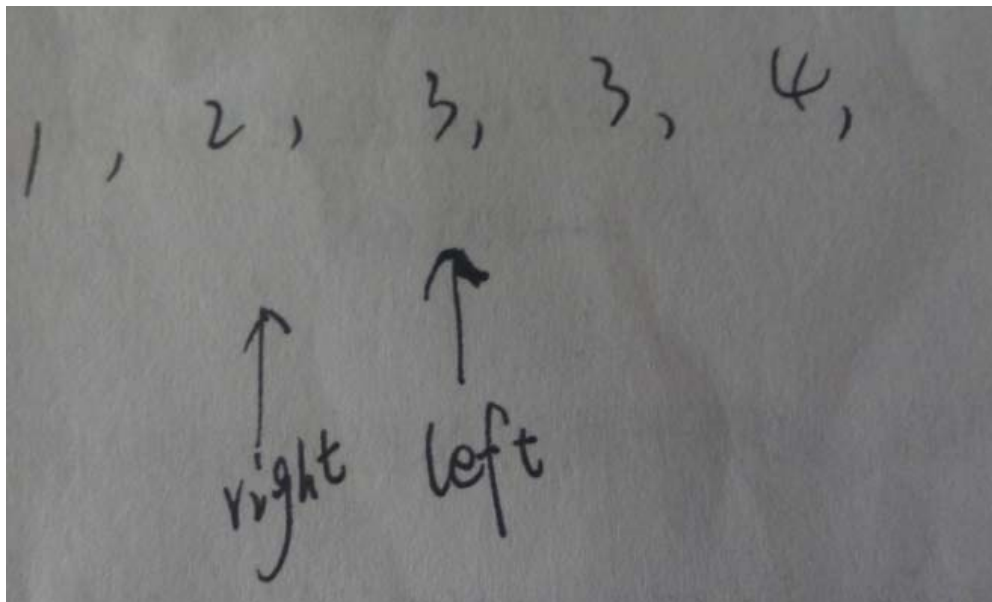 1, 2, 3, 3, 4,
right left